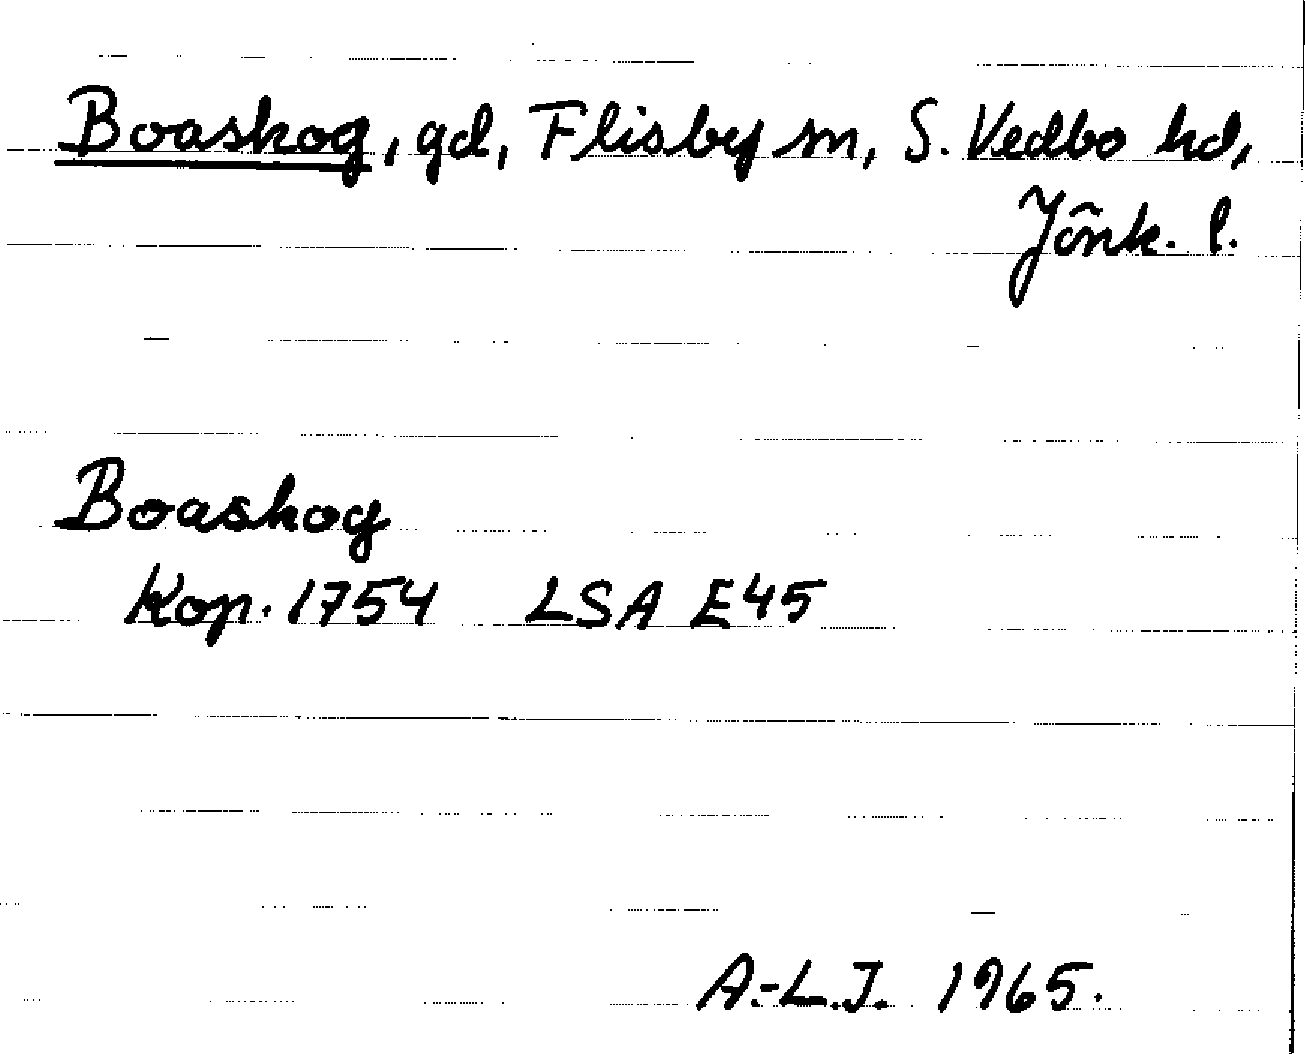 Boaskog, gd, Flisby sn, S. Vedbo hd,
Jönk. l.
Boaskog
Kop. 1754 LSA E45
A.-L.J. 1965.